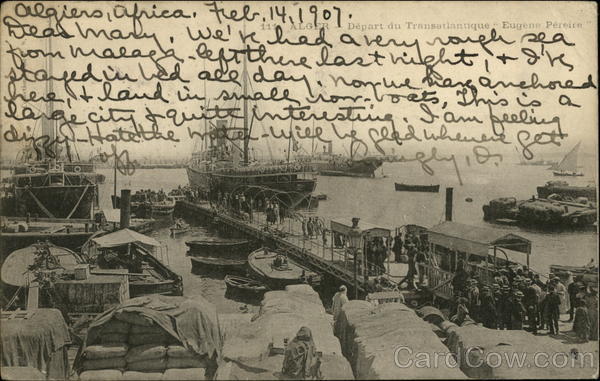 Algiers, Africa. Feb. 14, 1907.
11 ALGER - Départ du Transatlantique "Eugène Péreire"
Dear Mary, We've had a very rough sea
from Malaga - left there last night, & I've
stayed in bed all day, now we are anchored
here, & land in small row-boats. This is a
large city & quite interesting. I am feeling
dizzy - Hate the water - will be glad when we get
off
CardCow.com